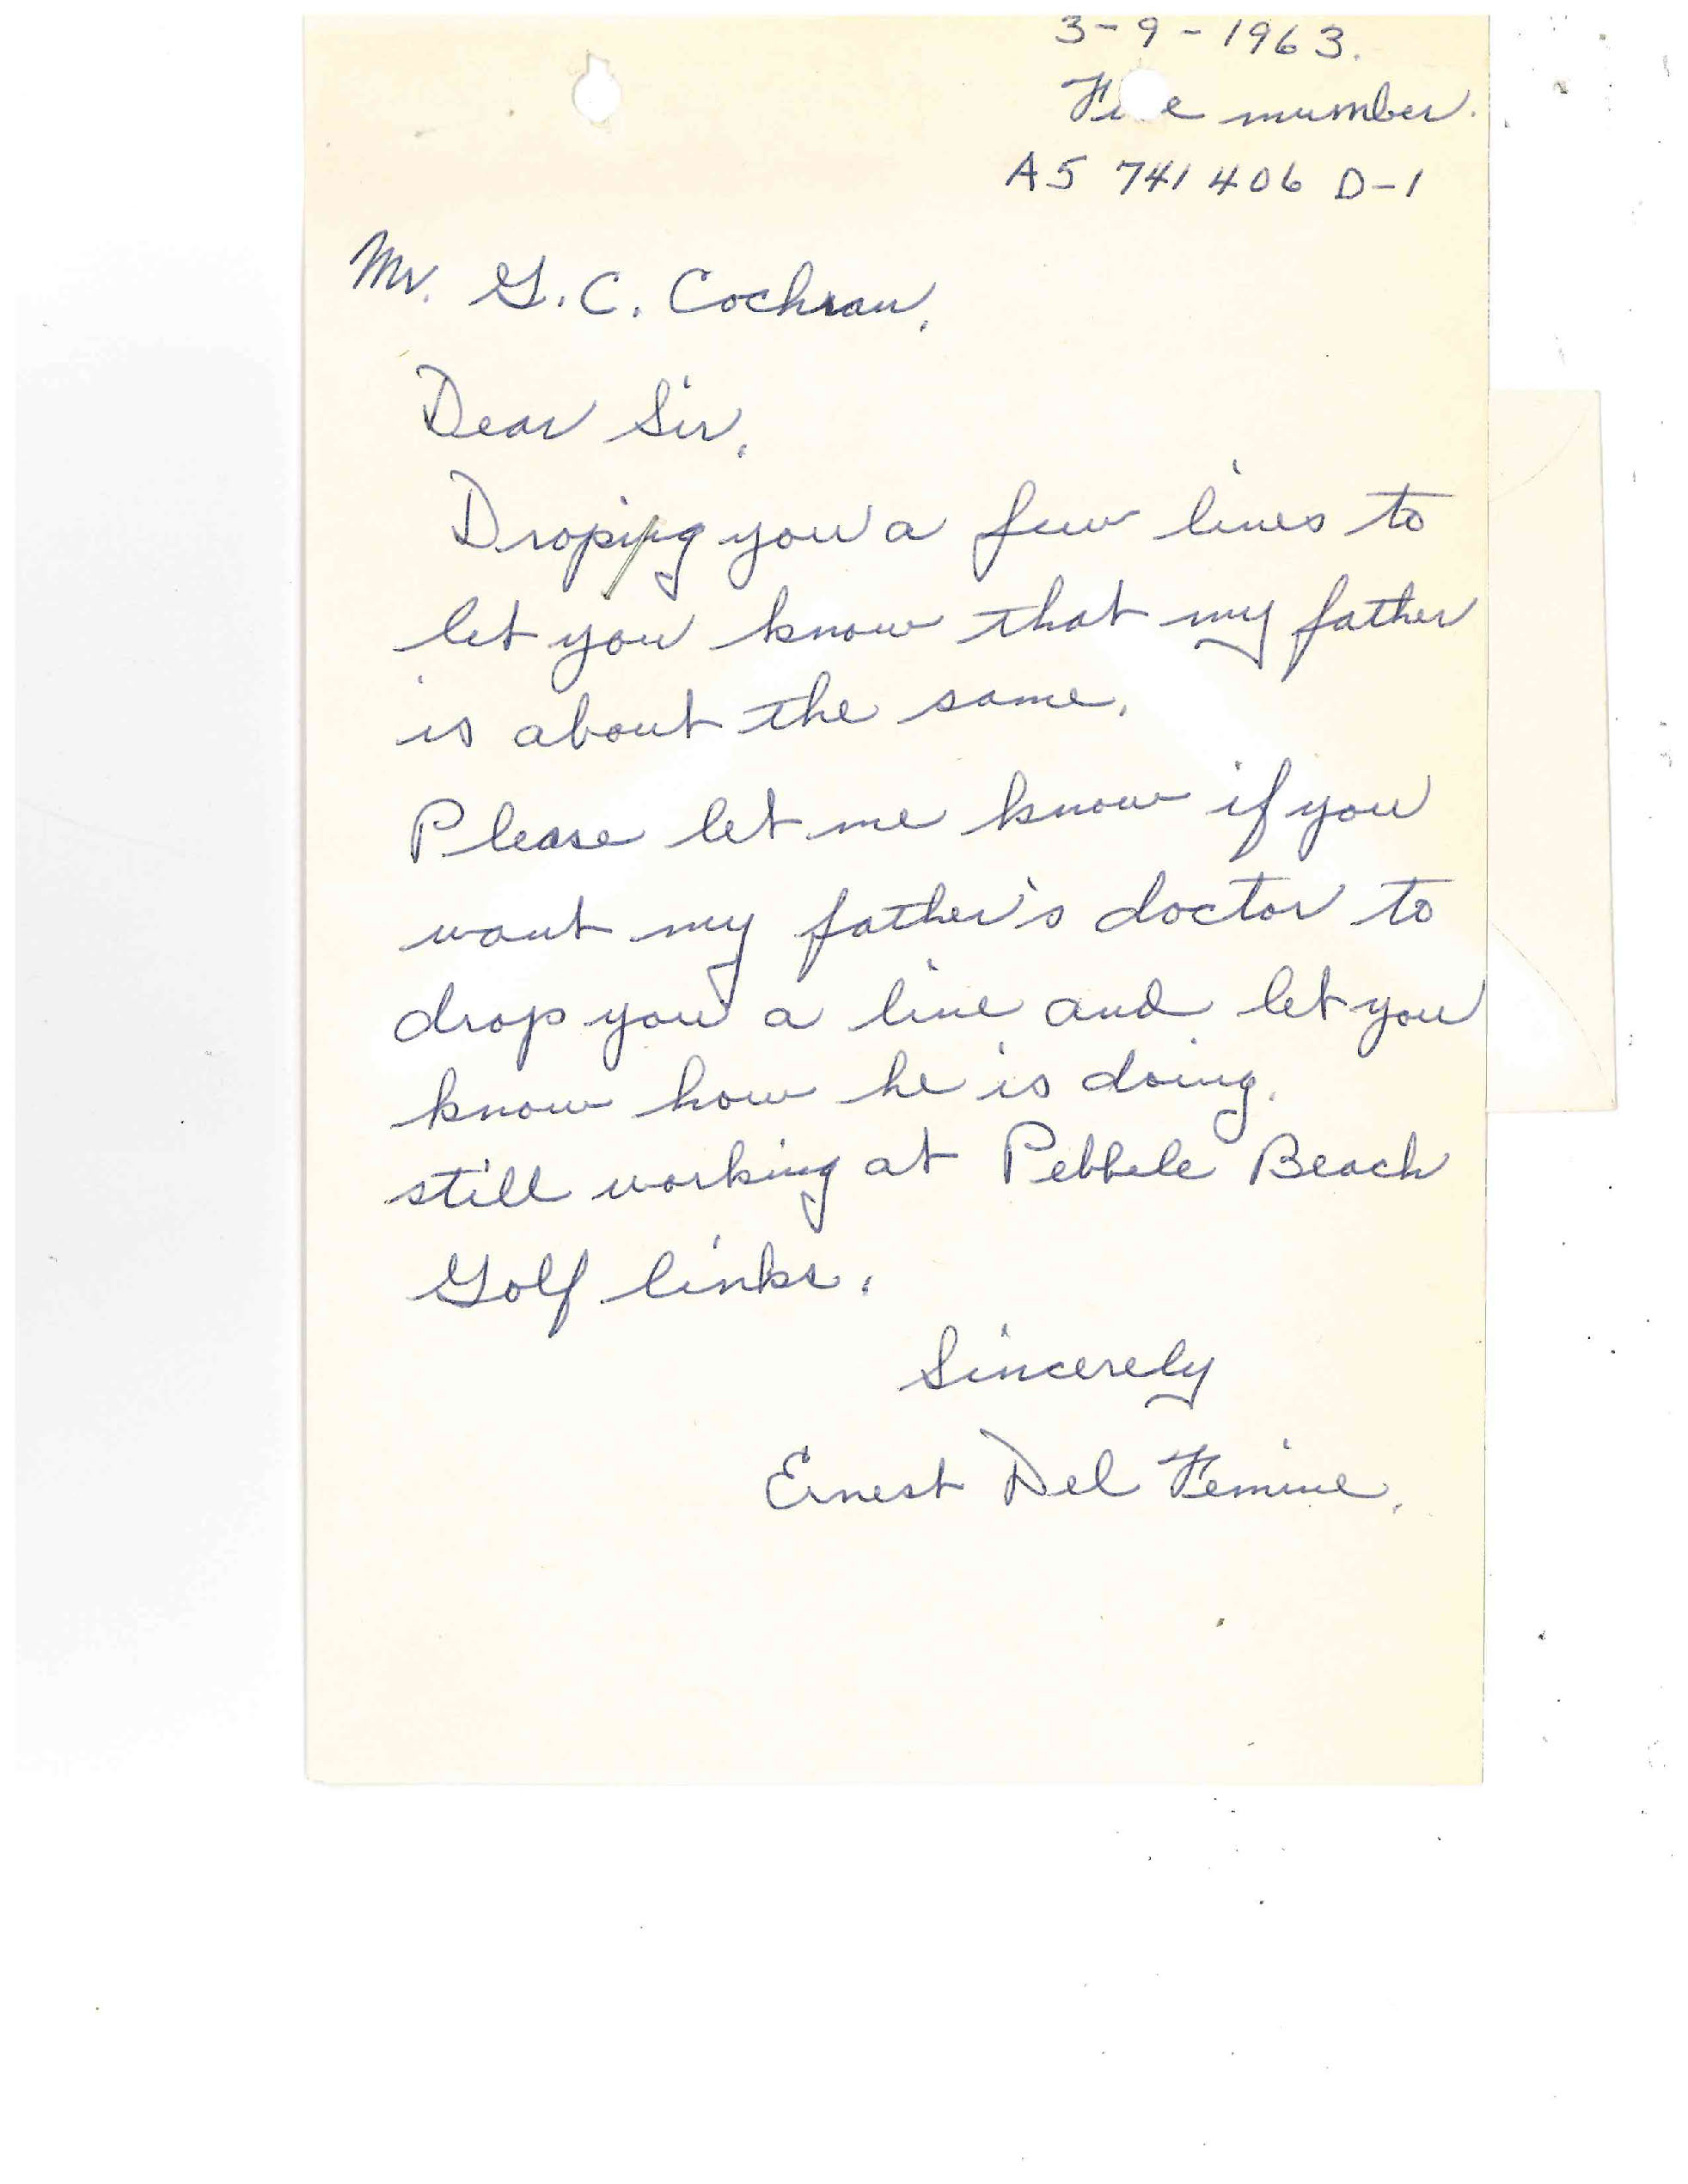 3-9-1963.
File number.
A5 741 406 D-1
Mr. G. C. Cochran,
Dear Sir,
Droping you a few lines to
let you know that my father
is about the same.
Please let me know if you
want my father's doctor to
drop you a line and let you
know how he is doing.
still working at Pebbele Beach
Golf links.
Sincerely
Ernest Del Femine.